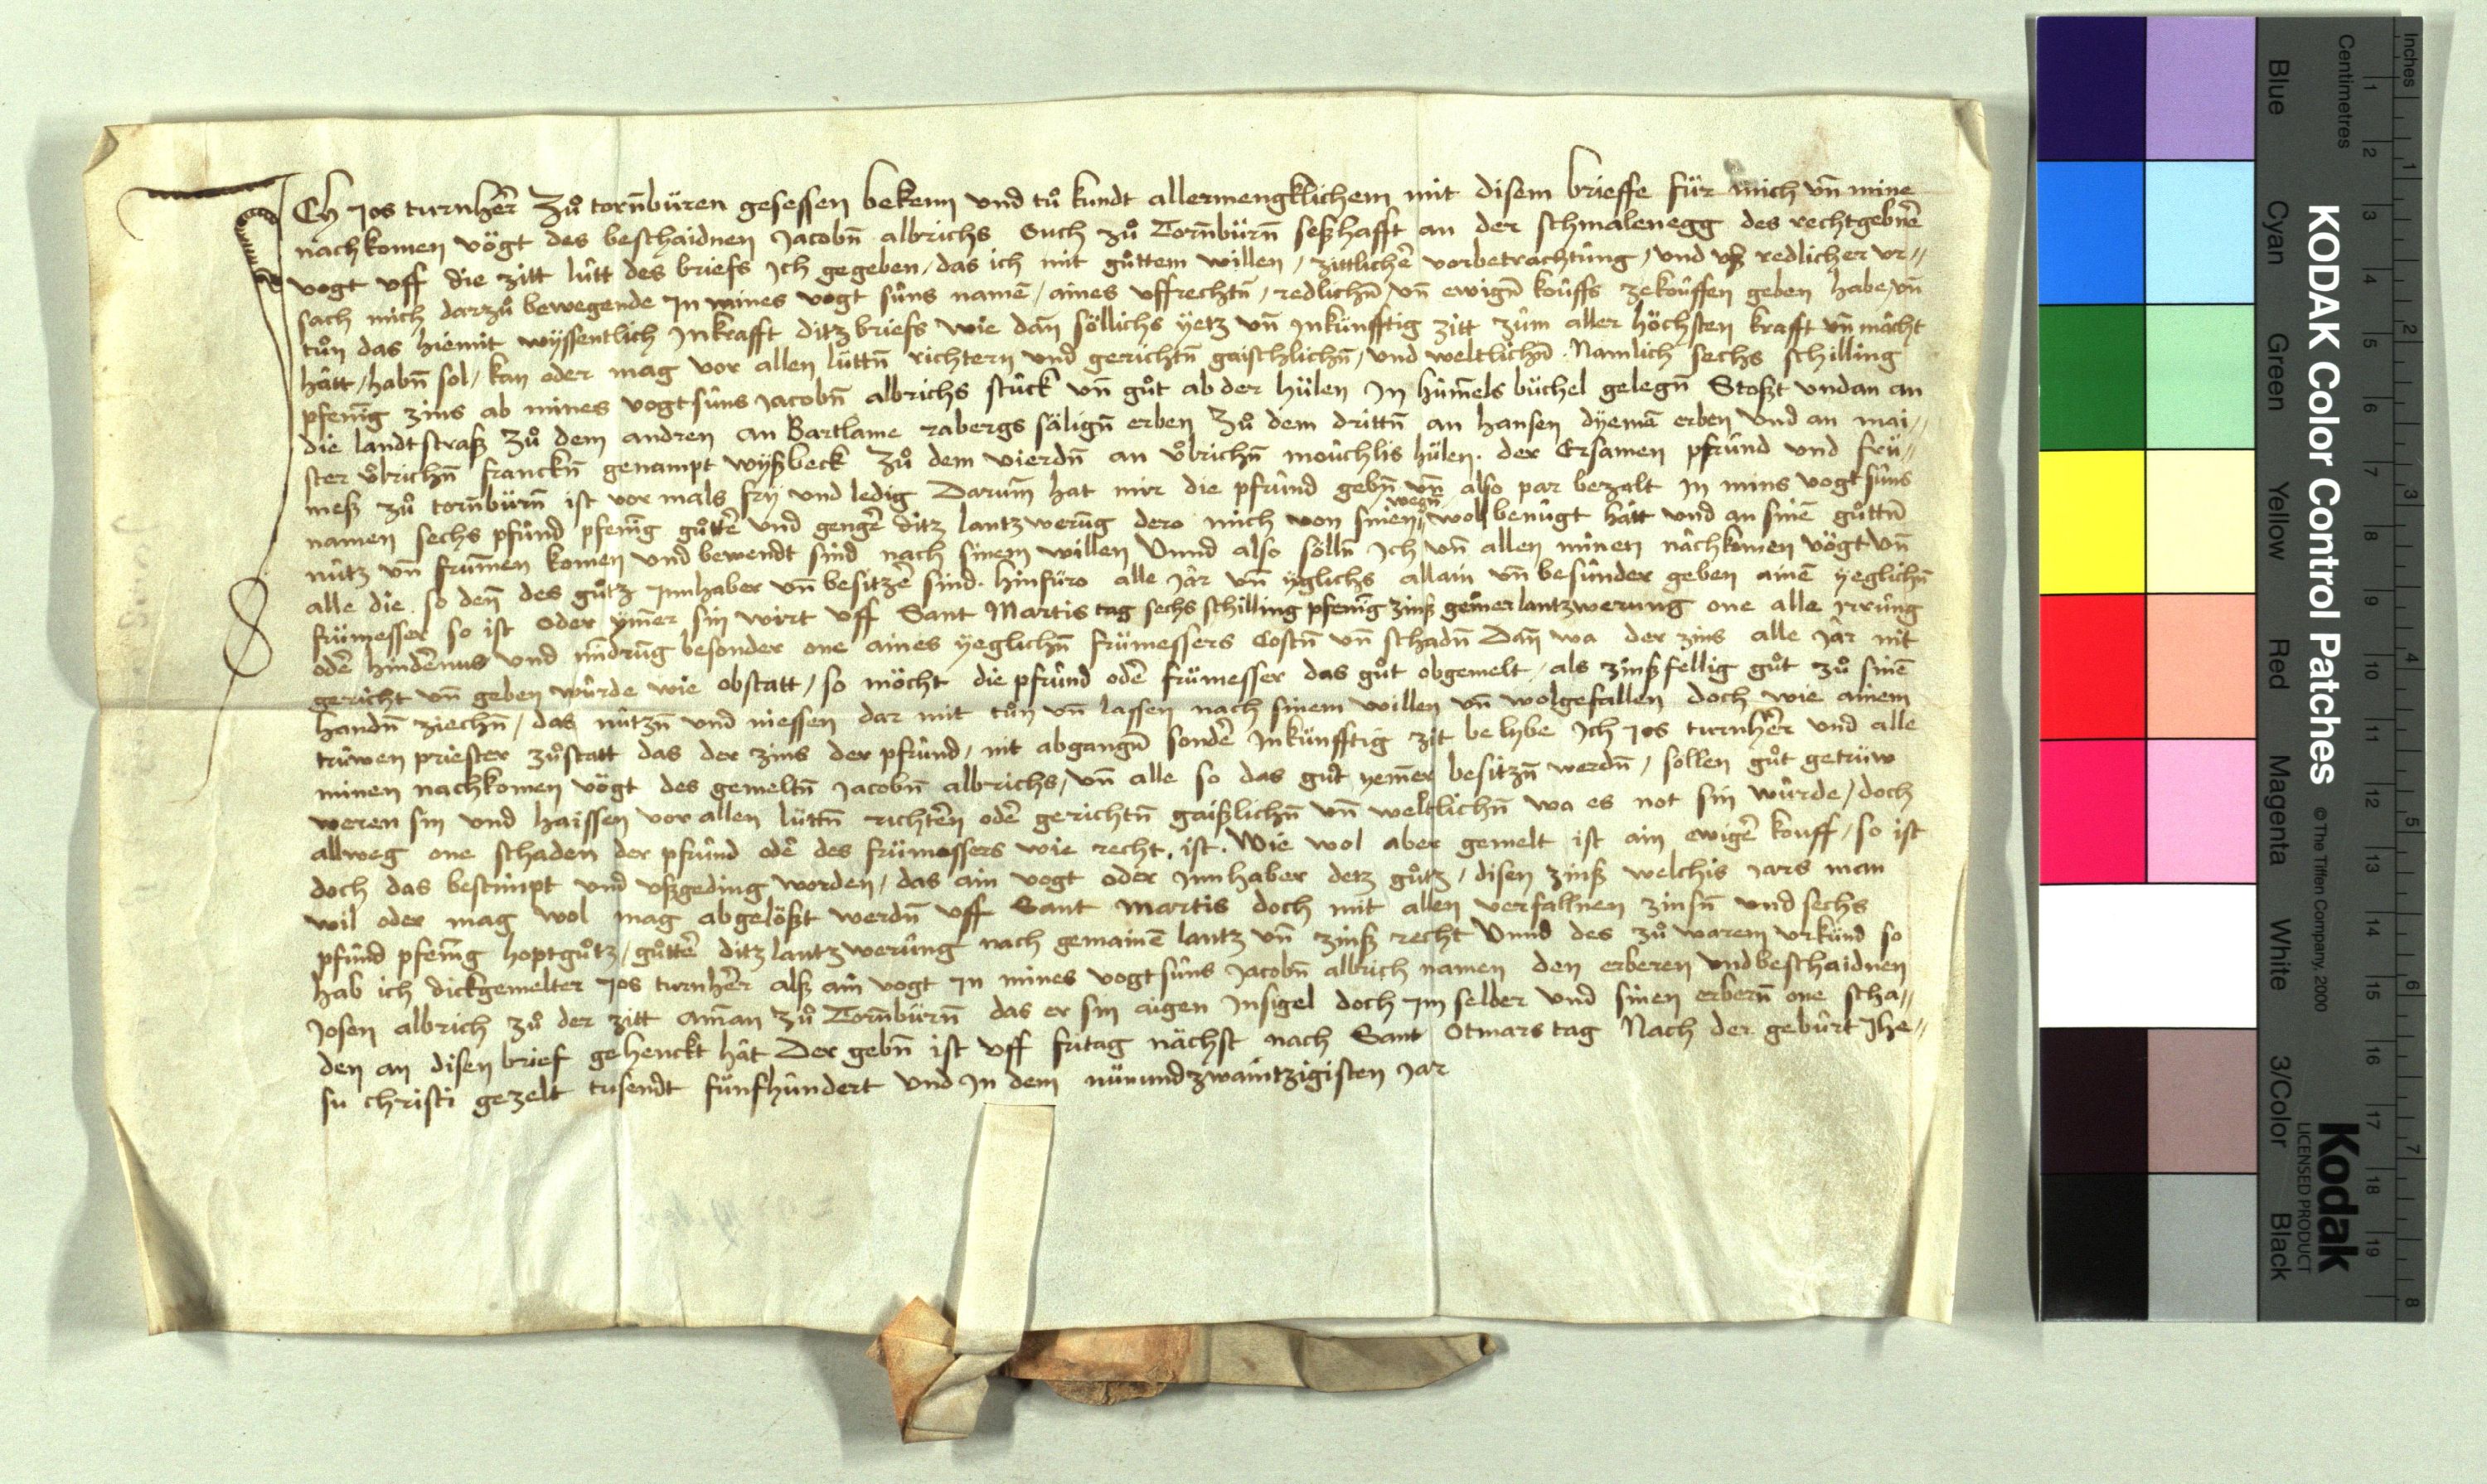 ICh Jos turnhẽr zů torñbüren gesessen bekenn und tů kundt allermengklichem mit disem brieffe für mich vñ mine
nachkomen vögt des beschaidnen Jacobñ albrichs Ouch zů Torñbürñ seßhafft an der schmalenegg des rechtgebnẽ
vogt vff die zitt lûtt des briefs Jch gegeben / das ich mit gůttem willen / zittlichẽ vorbetrachtûng / vnd vß redlicher vr//
sach mich darzů bewegende Jn mines vogt sûns namẽ / aines vffrechtñ / redlichñ vñ ewigñ koûffs zekoûffen geben habe / vñ
tůn das hiemit wyssentlich Jnkrafft ditz briefs wie dañ söllichs yetz vñ Jnkünfftig zitt zûm aller höchsten krafft vñ mâcht
hâtt / habñ sol / kan oder mag vor allen lüttñ richtern vnd gerichtñ gaistlichñ / vnd weltlichñ . Namlich sechs schilling
pfeñig zins ab mines vogtsûns Jacobñ albrichs stûck vñ gůt ab der hülen Jn hûm̃els büchel gelegñ Stoßt vndan an
die landtstraß zů dem andren an Bartlame rabergs säligñ erben zů dem drittñ an hansen dyemã erben vnd an mai//
ster ůlrichñ franckñ genampt wyßbeck zů dem vierdñ an ůlrichñ moûchlis hülen . der Ersamen pfrûnd vnd frü//
mess zů torñbürñ ist vor mals fry vnd ledig Darum̃ hat mir die pfrûnd gebñ vñ also par bezalt Jn mins vogtsûns
namen sechs pfûnd pfeñig gůttẽ vnd gengẽ ditz lantzwerũg dero mich von sinen wegñ wol benûgt hâtt vnd an sinẽ gůttñ
nûtz vñ frum̃en komen vnd bewendt sind nach sinem willen Vnnd also sölln Jch vñ allen minen nâchkomen vögt vñ
alle die so deñ des gůtz Jnnhaber vñ besitzẽ sind . hinfüro alle Jâr vñ yglichs allain vñ besûnder geben ainẽ yeglichñ
frümesser so ist oder ym̃er sin wirt vff Sant Martis tag sechs schilling pfeñig zinß gemer lantzwerung one alle Jrrûng
odẽ hindẽnus vnd mĩdrũg besonder one aines yeglichñ frümessers Costñ vñ schadñ Dañ wa der zins alle Jâr nit
gericht vñ geben wûrde wie obstatt / so möcht die pfrûnd odẽ frümesser das gůt obgemelt / als zinßfellig gůt zů sinẽ
handñ ziechñ / das nûtzñ vnd niessen dar mit tůn vñ lassen nach sinem willen vñ wolgefallen doch wie ainem
trûwen priester zůstatt das der zins der pfrûnd / nit abgangñ sondẽ Jnkünfftig zit belybe Jch Jos turnhẽr vnd alle
minen nachkomen vögt des gemeltñ Jacobñ albrichs / vñ alle so das gůt yem̃er besitzñ werdñ / sollen gůt getrüw
weren sin vnd haissen vor allen lüttñ richtẽn odẽ gerichtñ gaißlichñ vñ weltlichñ wa es not sin wûrde / doch
allweg one schaden der pfrûnd odẽ des frümessers wie recht ist . Wie wol aber gemelt ist ain ewigẽ kouff / so ist
doch das bestimpt vnd vßgeding worden / das ain vogt oder Jnnhaber detz gůtz / disen zinß welchis Jars man
wil oder mag wol mag abgelößt werdñ vff Sant martis doch mit allen verfallnen zinsñ vnd sechs
pfûnd pfeñig hoptgůtz / gůttẽ ditz lantzwerûng nach gemainẽ lantz vñ zinß recht Vnnd des zů warem vrkûnd so
hab ich dickgemelter Jos turnhẽr alß ain vogt Jn mines vogtsûns Jacobñ albrich namen den erberen vnd beschaidnen
Josen albrich zů der zitt am̃an zů Torñbürñ das er sin aigen Jnsigel doch Jm selber vnd sinen erberñ one scha//
den an disen brief gehenckt hât Der gebñ ist vff fritag nächst nach Sant Otmars tag Nach der gebûrt Jhe//
su christi gezelt tusendt fünfhûndert vnd Jn dem nünundzwaintzigisten Jar
KODAK Color Control Patches © The Tiffen Company, 2000
Kodak
LICENSED PRODUCT
Blue Cyan Green Yellow Red Magenta White 3/Color Black
Centimetres 1 2 3 4 5 6 7 8 9 10 11 12 13 14 15 16 17 18 19
Inches 1 2 3 4 5 6 7 8